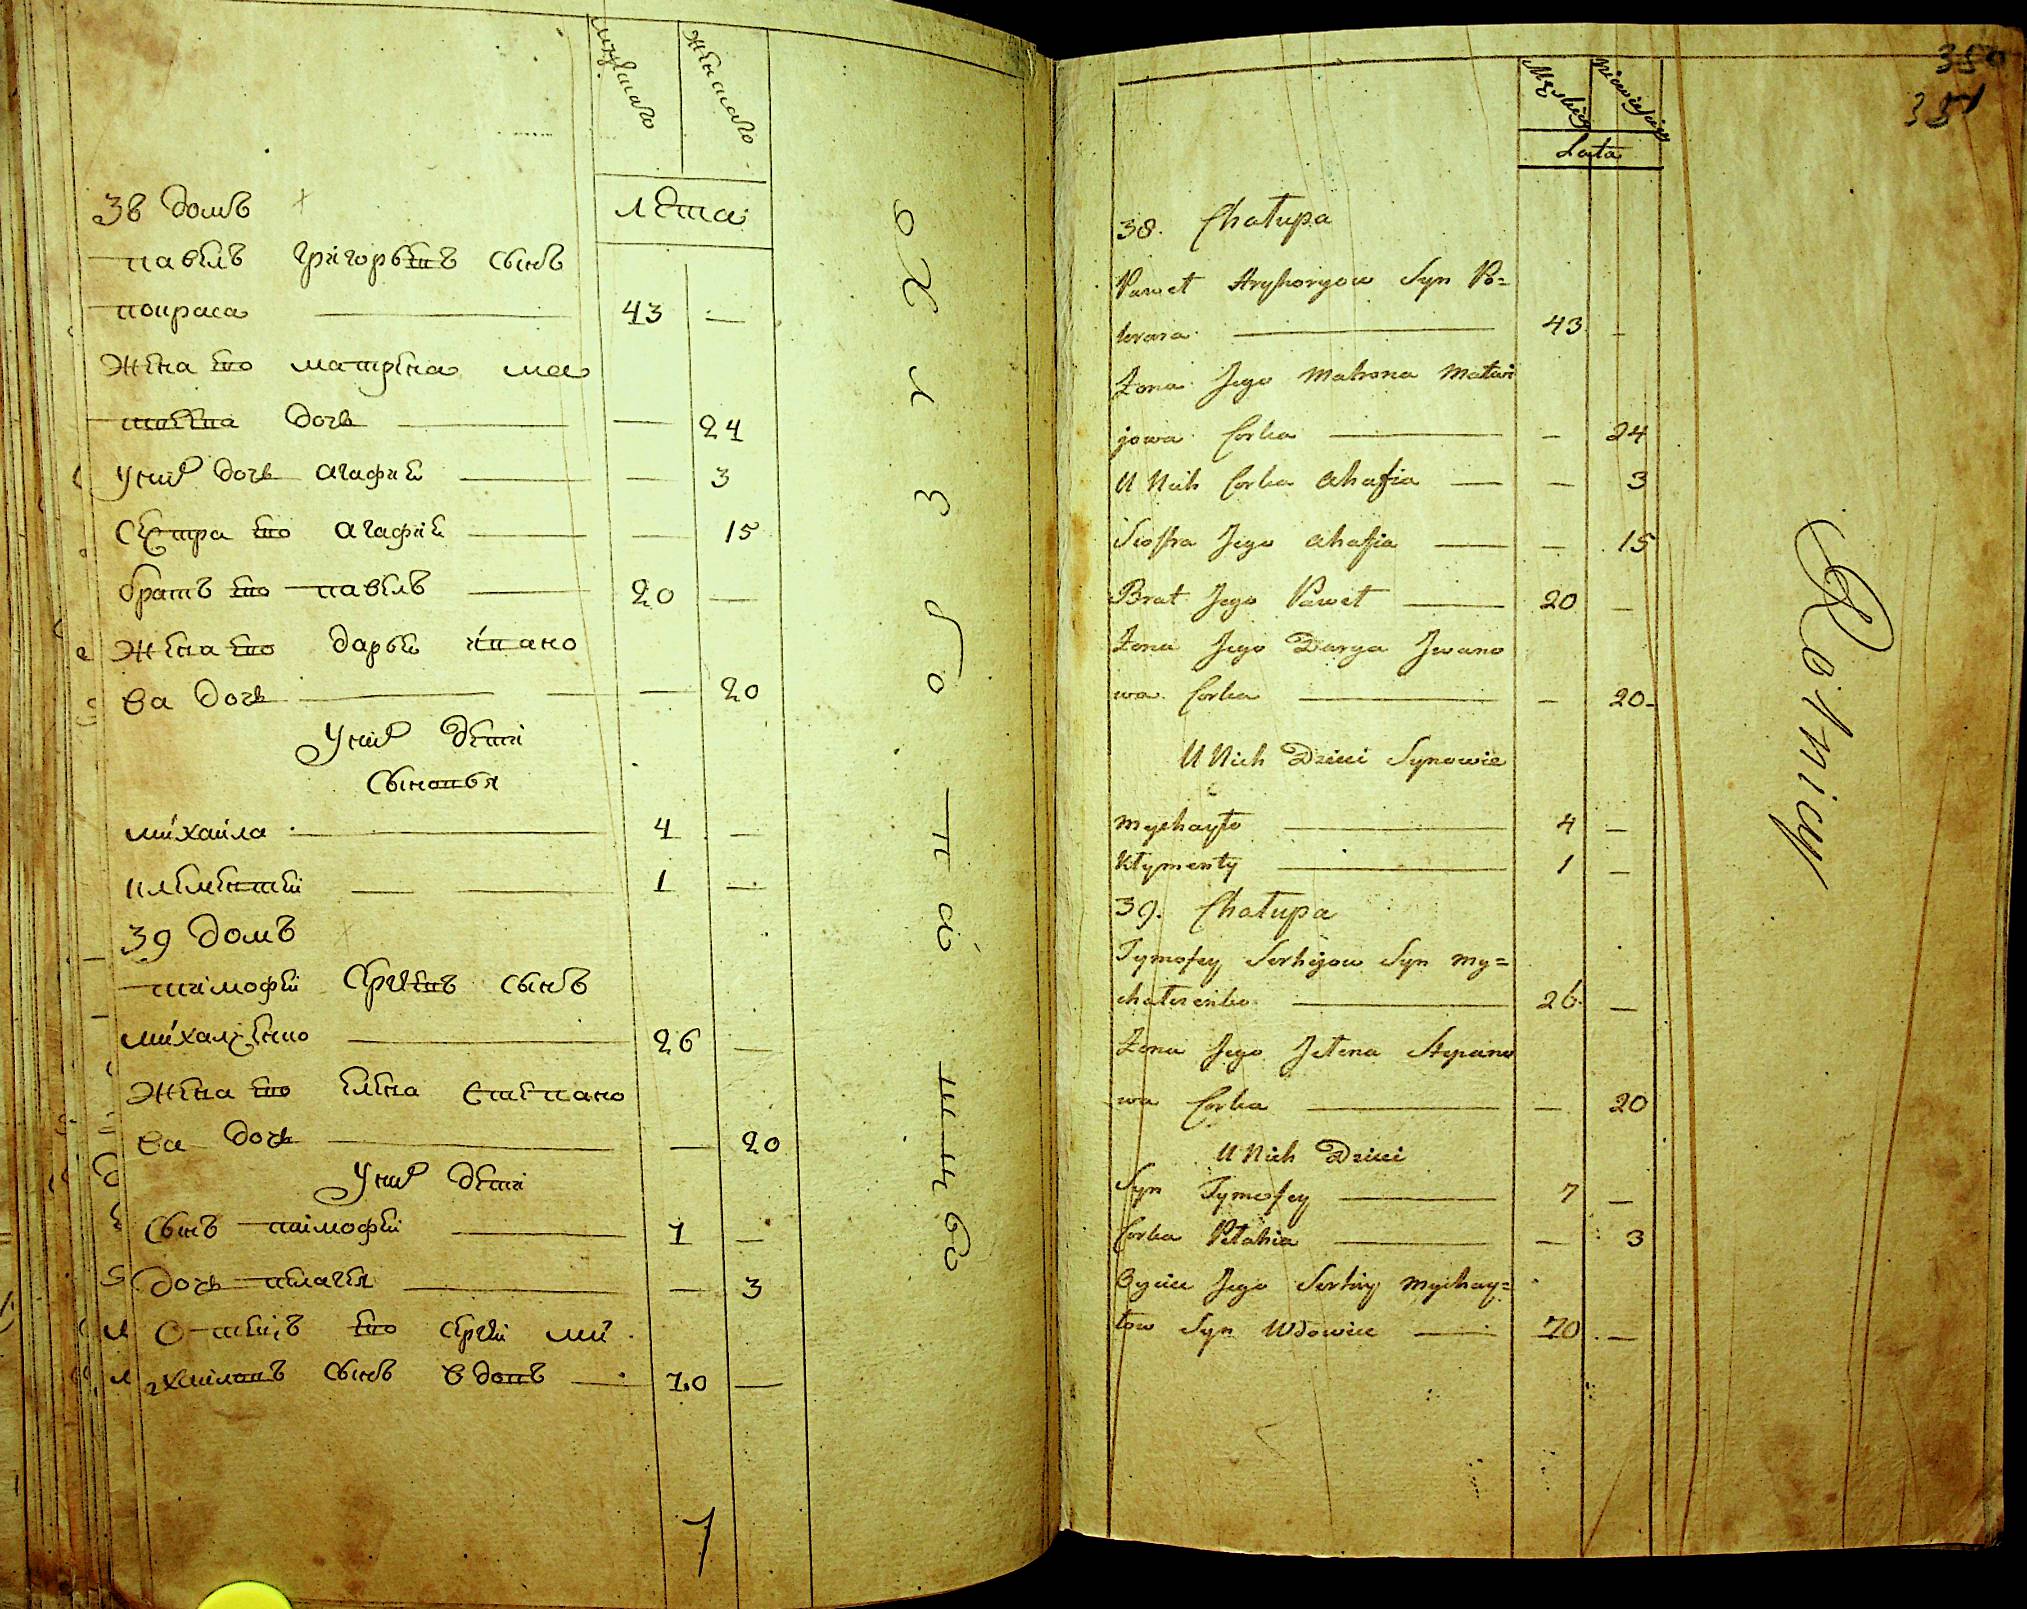 мужскаго женскаго
лета
38 домъ
павелъ григорьевъ сынъ
покраса 43 —
жена его матрена мат
веева дочь — 24
у них дочь агафия — 3
сестра его агафия — 15
братъ его павелъ 20 —
жена его дарья ивано
ва дочь — 20
у них дети
сыновья
михаила 4 —
климентий 1 —
39 домъ
тимофей сергеевъ сынъ
михалченко 26 —
жена его елена степано
ва дочь — 20
у них дети
сынъ тимофей 7 —
дочь пелагея — 3
отецъ его сергей ми
хаиловъ сынъ вдовъ 70 —
350
351
Męskiey Niewieściey
Lata
38. Chałupa
Paweł Hryhoryow Syn Po=
krasa 43 —
Żona Jego Matrona Matwi
jowa Corka — 24
U Nich Corka Ahafia — 3
Siostra Jego Ahafia — 15
Brat Jego Paweł 20 —
Żona Jego Darya Jwano
wa Corka — 20
U Nich Dzieci Synowie
Mychayło 4 —
Kłymenty 1 —
39. Chałupa
Tymofey Serhijow Syn My=
chalczenko 26 —
Żona Jego Jełena Stepano
wa Corka — 20
U Nich Dzieci
Syn Tymofey 7 —
Corka Pełahia — 3
Oyciec Jego Serhiy Mychay=
łow Syn Wdowiec 70 —
Rolnicy